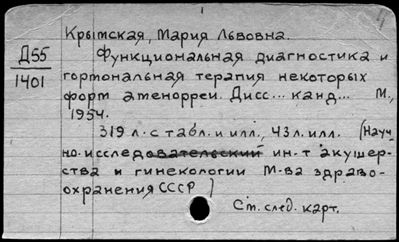 Крымская, Мария Львовна.
Д55
1401
Функциональная диагностика и
гормональная терапия некоторых
форм аменорреи. Дисс... канд... М.,
1954.
319 л. с табл. и илл., 43 л. илл. (Науч
но-исследовательский ин-т акушер-
ства и гинекологии М-ва здраво-
охранения СССР)
См. след. карт.